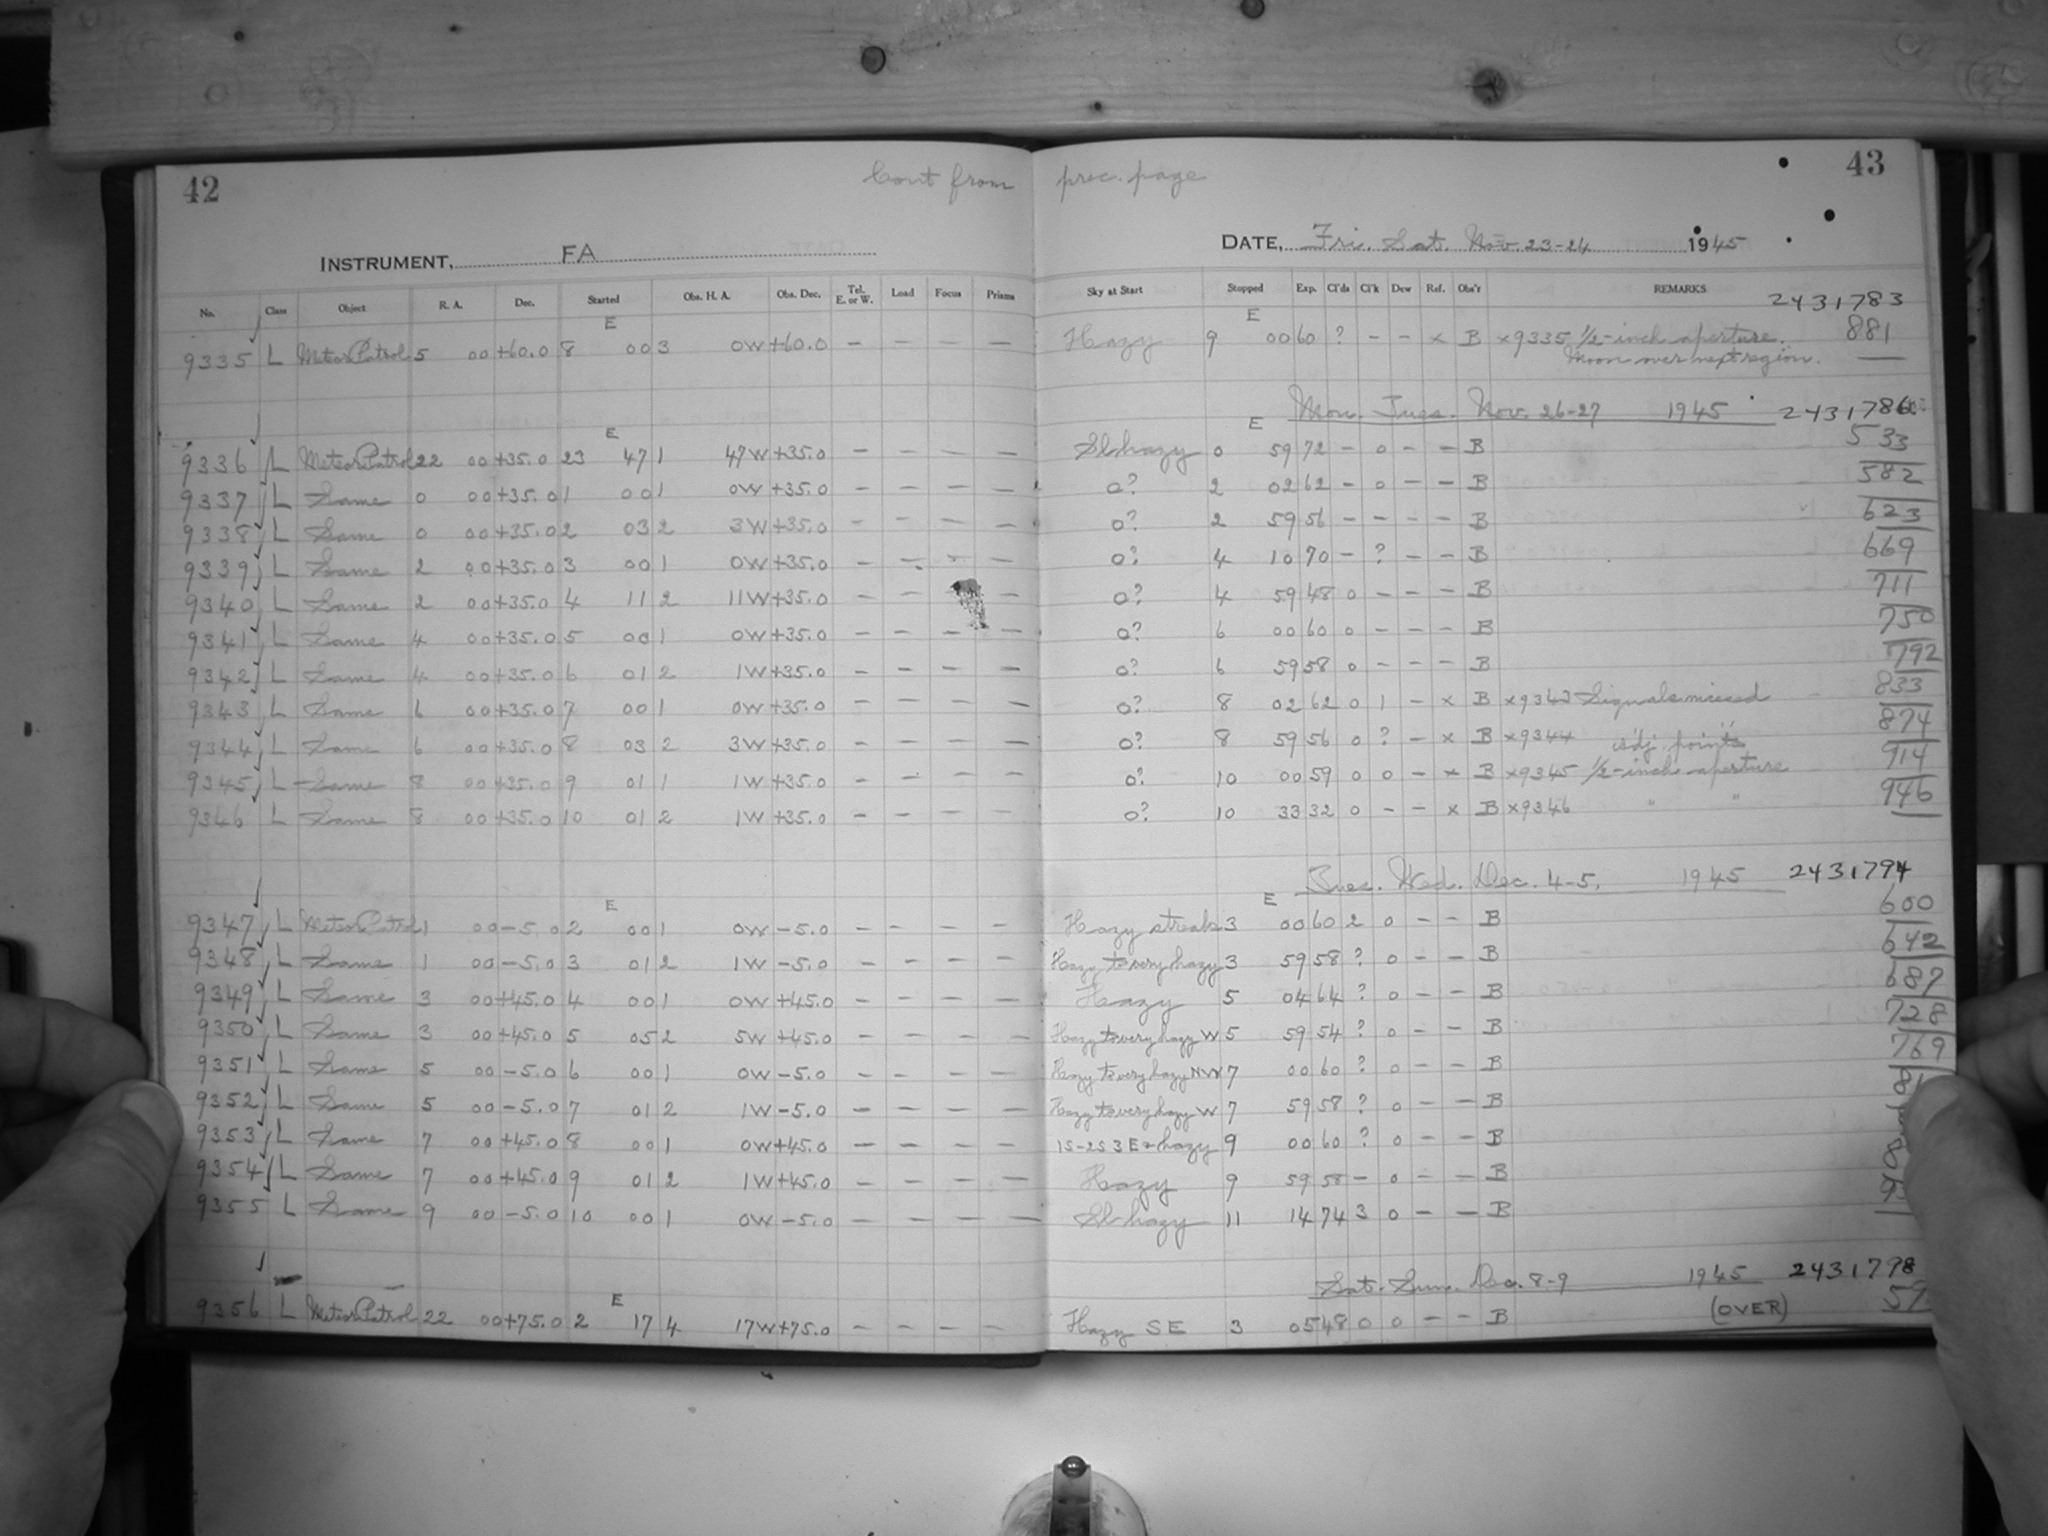 42 Cont from prec. page 43
INSTRUMENT, FA DATE, Fri. Sat. Nov. 23-24 1945
No. Class Object R. A. Dec. Started Obs. H. A. Obs. Dec. Tel. E. or W. Load Focus Prisms Sky at Start Stopped Exp. Cl'ds Cl'k Dew Ref. Obs'r REMARKS 2431783
E E
9335 L Meteor Patrol 5 00 +60.0 8 00 3 0W +60.0 — — — — Hazy 9 00 60 ? – – × B ×9335 1/2-inch aperture. 881
Moon over next region.
Mon. Tues. Nov. 26-27 1945 2431786
E E
9336 L Meteor Patrol 22 00 +35.0 23 47 1 47W +35.0 — — — — Sl hazy 0 59 72 – 0 – – B 533
9337 L Same 0 00 +35.0 1 00 1 0W +35.0 — — — — 0? 2 02 62 – 0 – – B 582
9338 L Same 0 00 +35.0 2 03 2 3W +35.0 — — — — 0? 2 59 56 – – – – B 623
9339 L Same 2 00 +35.0 3 00 1 0W +35.0 — — — — 0? 4 10 70 – ? – – B 669
9340 L Same 2 00 +35.0 4 11 2 11W +35.0 — — — 0? 4 59 48 0 – – – B 711
9341 L Same 4 00 +35.0 5 00 1 0W +35.0 — — — — 0? 6 00 60 0 – – – B 750
9342 L Same 4 00 +35.0 6 01 2 1W +35.0 — — — — 0? 6 59 58 0 – – – B 792
9343 L Same 6 00 +35.0 7 00 1 0W +35.0 — — — — 0? 8 02 62 0 1 – × B ×9343 Signals missed 833
9344 L Same 6 00 +35.0 8 03 2 3W +35.0 — — — — 0? 8 59 56 0 ? – × B ×9344 adj. points 874
9345 L Same 8 00 +35.0 9 01 1 1W +35.0 — — — — 0? 10 00 59 0 0 – × B ×9345 1/2-inch aperture 914
9346 L Same 8 00 +35.0 10 01 2 1W +35.0 — — — — 0? 10 33 32 0 – – × B ×9346 " " 946
Tues. Wed. Dec. 4-5. 1945 2431794
E E
9347 L Meteor Patrol 1 00 –5.0 2 00 1 0W –5.0 — — — — Hazy streaks 3 00 60 2 0 – – B 600
9348 L Same 1 00 –5.0 3 01 2 1W –5.0 — — — — Hazy to very hazy 3 59 58 ? 0 – – B 642
9349 L Same 3 00 +45.0 4 00 1 0W +45.0 — — — — Hazy 5 04 64 ? 0 – – B 687
9350 L Same 3 00 +45.0 5 05 2 5W +45.0 — — — — Hazy to very hazy W 5 59 54 ? 0 – – B 728
9351 L Same 5 00 –5.0 6 00 1 0W –5.0 — — — — Hazy to very hazy NW 7 00 60 ? 0 – – B 769
9352 L Same 5 00 –5.0 7 01 2 1W –5.0 — — — — Hazy to very hazy W 7 59 58 ? 0 – – B
9353 L Same 7 00 +45.0 8 00 1 0W +45.0 — — — — 1S-2S 3E + hazy 9 00 60 ? 0 – – B
9354 L Same 7 00 +45.0 9 01 2 1W +45.0 — — — — Hazy 9 59 58 – 0 – – B
9355 L Same 9 00 –5.0 10 00 1 0W –5.0 — — — — Sl hazy 11 14 74 3 0 – – B
Sat. Sun. Dec. 8-9 1945 2431798
E (OVER)
9356 L Meteor Patrol 22 00 +75.0 2 17 4 17W +75.0 — — — — Hazy SE 3 05 48 0 0 – – B